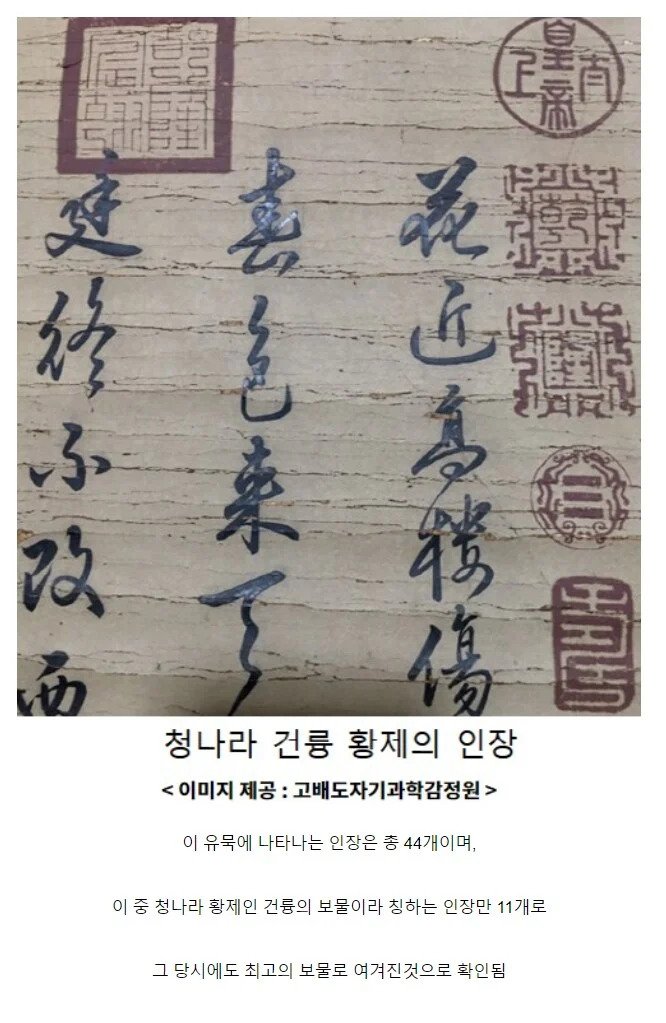 太上皇帝
乾
隆
花近高樓傷
春色来天
庭終不改西
청나라 건륭 황제의 인장
< 이미지 제공 : 고배도자기과학감정원 >
이 유묵에 나타나는 인장은 총 44개이며,
이 중 청나라 황제인 건륭의 보물이라 칭하는 인장만 11개로
그 당시에도 최고의 보물로 여겨진것으로 확인됨